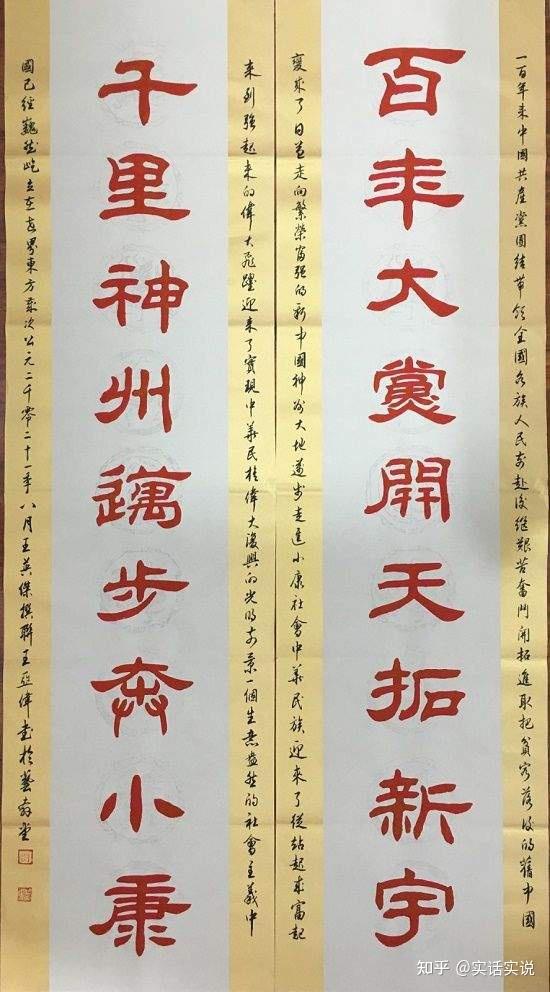 一百年来中國共産黨團結带领全國各族人民前赴後继艱苦奮鬥開拓進取把貧窮落後的舊中國
百年大黨開天拓新宇
變成了日益走向繁榮富强的新中國神州大地邁步走進小康社會中華民族迎来了從站起来富起
来到强起来的偉大飛躍迎来了實現中華民族偉大復興的光明前景一個生意盎然的社會主義中
千里神州邁步奔小康
國已經巍然屹立在世界東方歲次公元二千零二十一年八月王英傑撰聯王亞偉書於藝
知乎 @实话实说